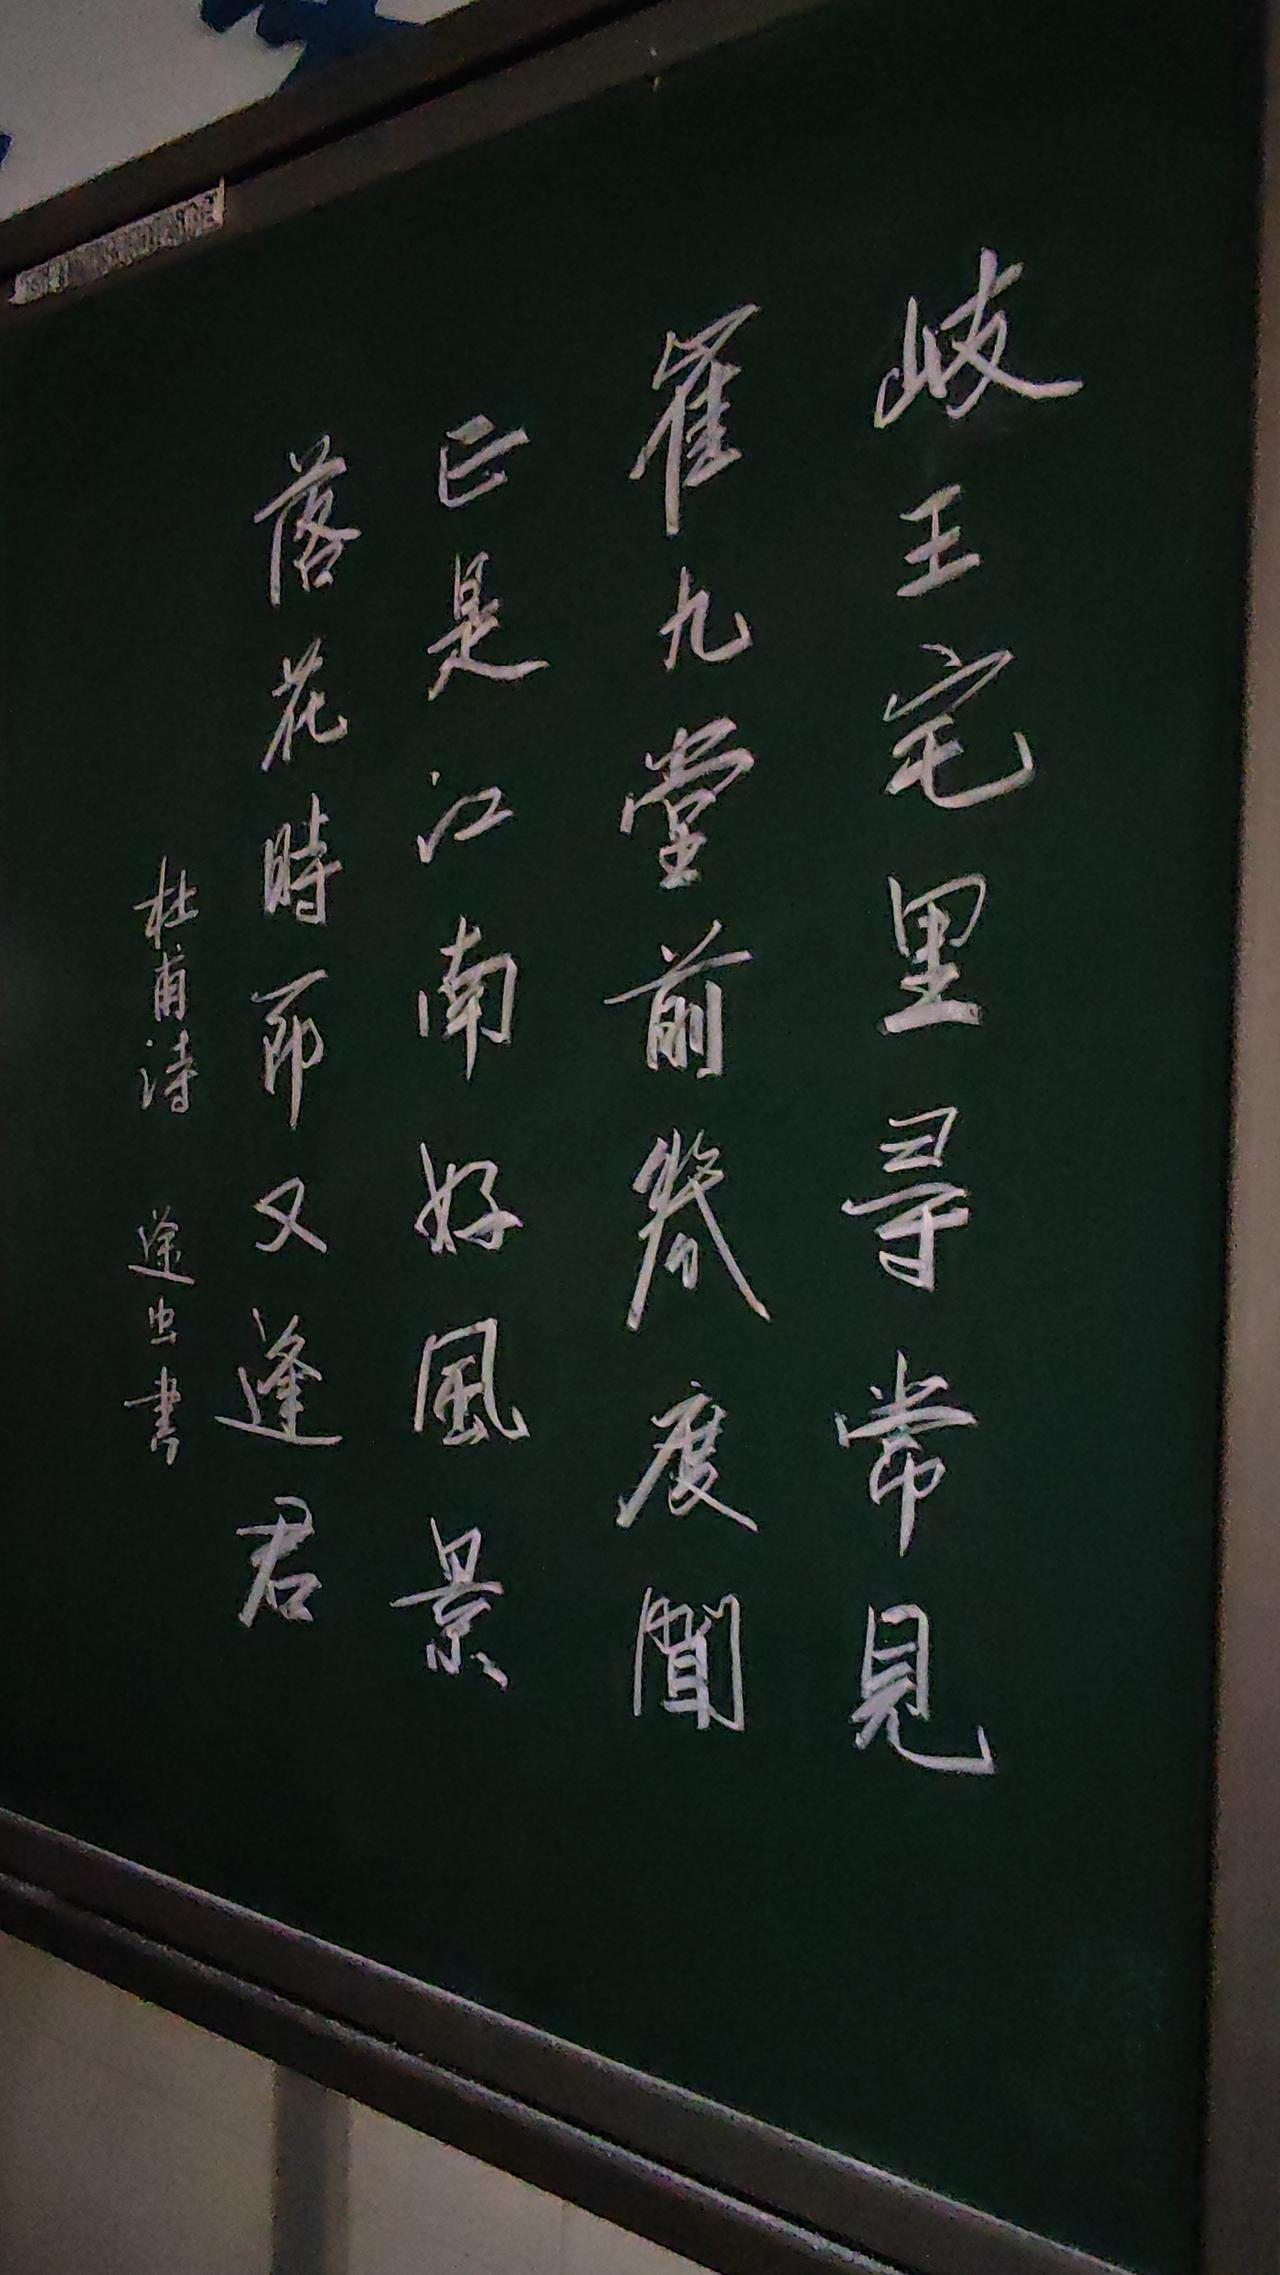 岐王宅里尋常見
崔九堂前幾度聞
正是江南好風景
落花時節又逢君
杜甫詩 途虫書